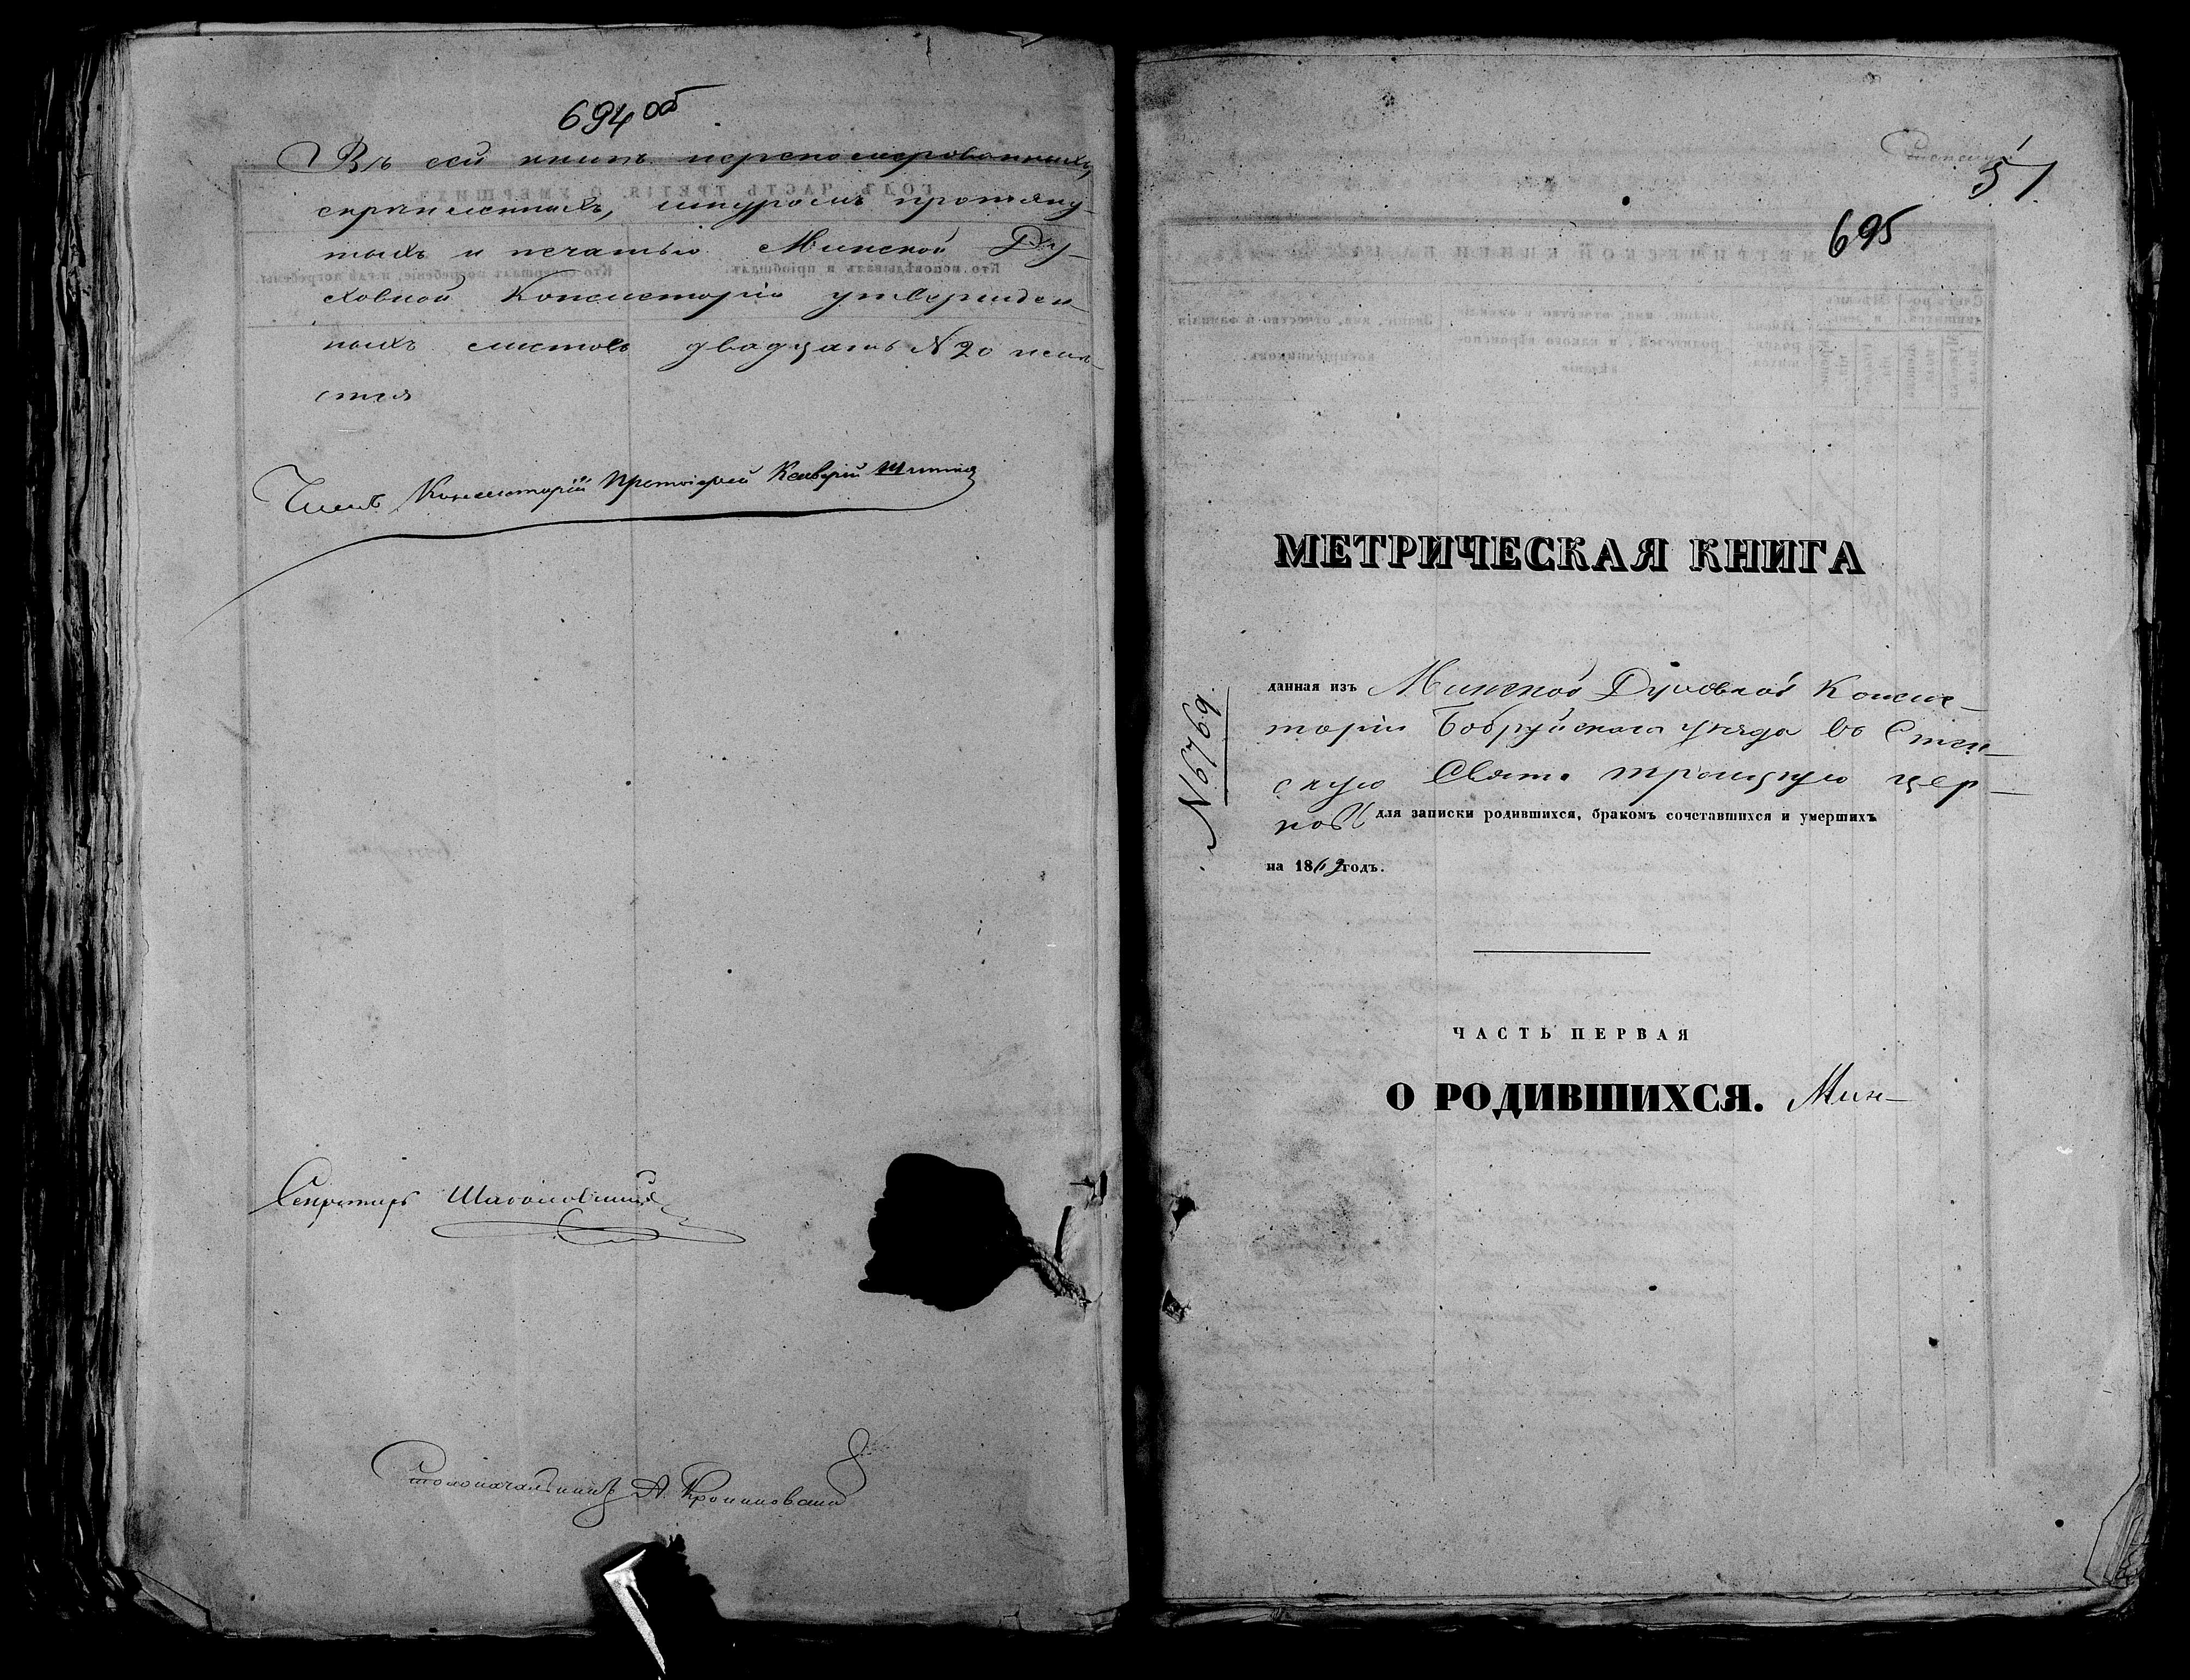 694 об
Въ сей книгѣ перенумерованныхъ,
скрѣпленныхъ, шнуромъ протяну-
тыхъ и печатью Минской Ду-
ховной Консисторіи утвержден-
ныхъ листовъ двадцать № 20
Членъ Консисторіи Протоіерей
Секретарь
Столоначальникъ А.
57.
695
МЕТРИЧЕСКАЯ КНИГА
№ 6769.
данная изъ Минской Духовной Консис-
торіи Бобруйскаго уѣзда въ
скую Свято троицкую цер-
ковь для записки родившихся, бракомъ сочетавшихся и умершихъ
на 1869 годъ.
ЧАСТЬ ПЕРВАЯ
О РОДИВШИХСЯ. Мин-